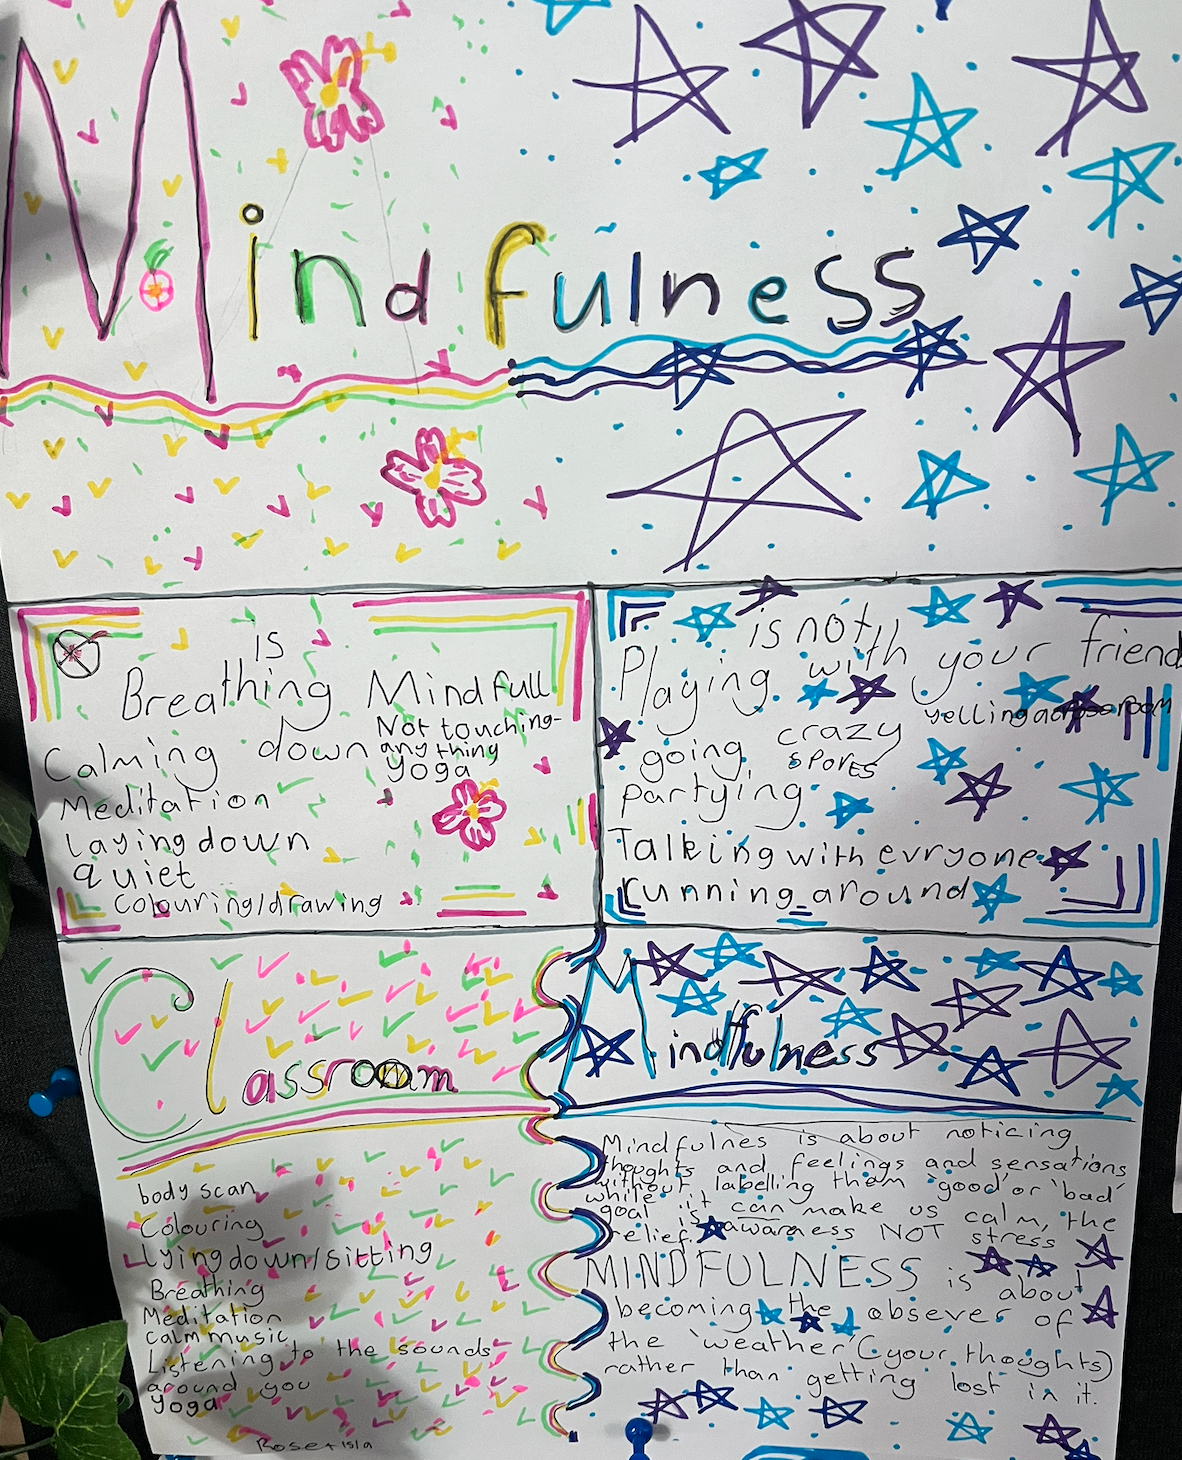 Mindfulness
is
Breathing Mindfull
Calming down
Not touching
anything
yoga
Meditation
Laying down
quiet
colouring/drawing
is not
Playing with your friend
going crazy yelling across room
sports
partying
Talking with evryone
running around
Classroom Mindfulness
body scan
Colouring
Lying down/sitting
Breathing
Meditation
calm music
Listening to the sounds
around you
yoga
Rose + Isla
Mindfulnes is about noticing
thoughts and feelings and sensations
without labelling them 'good' or 'bad'
while it can make us calm, the
goal is awareness NOT stress
relief.
MINDFULNESS is about
becoming the obsever of
the 'weather' (your thoughts)
rather than getting lost in it.